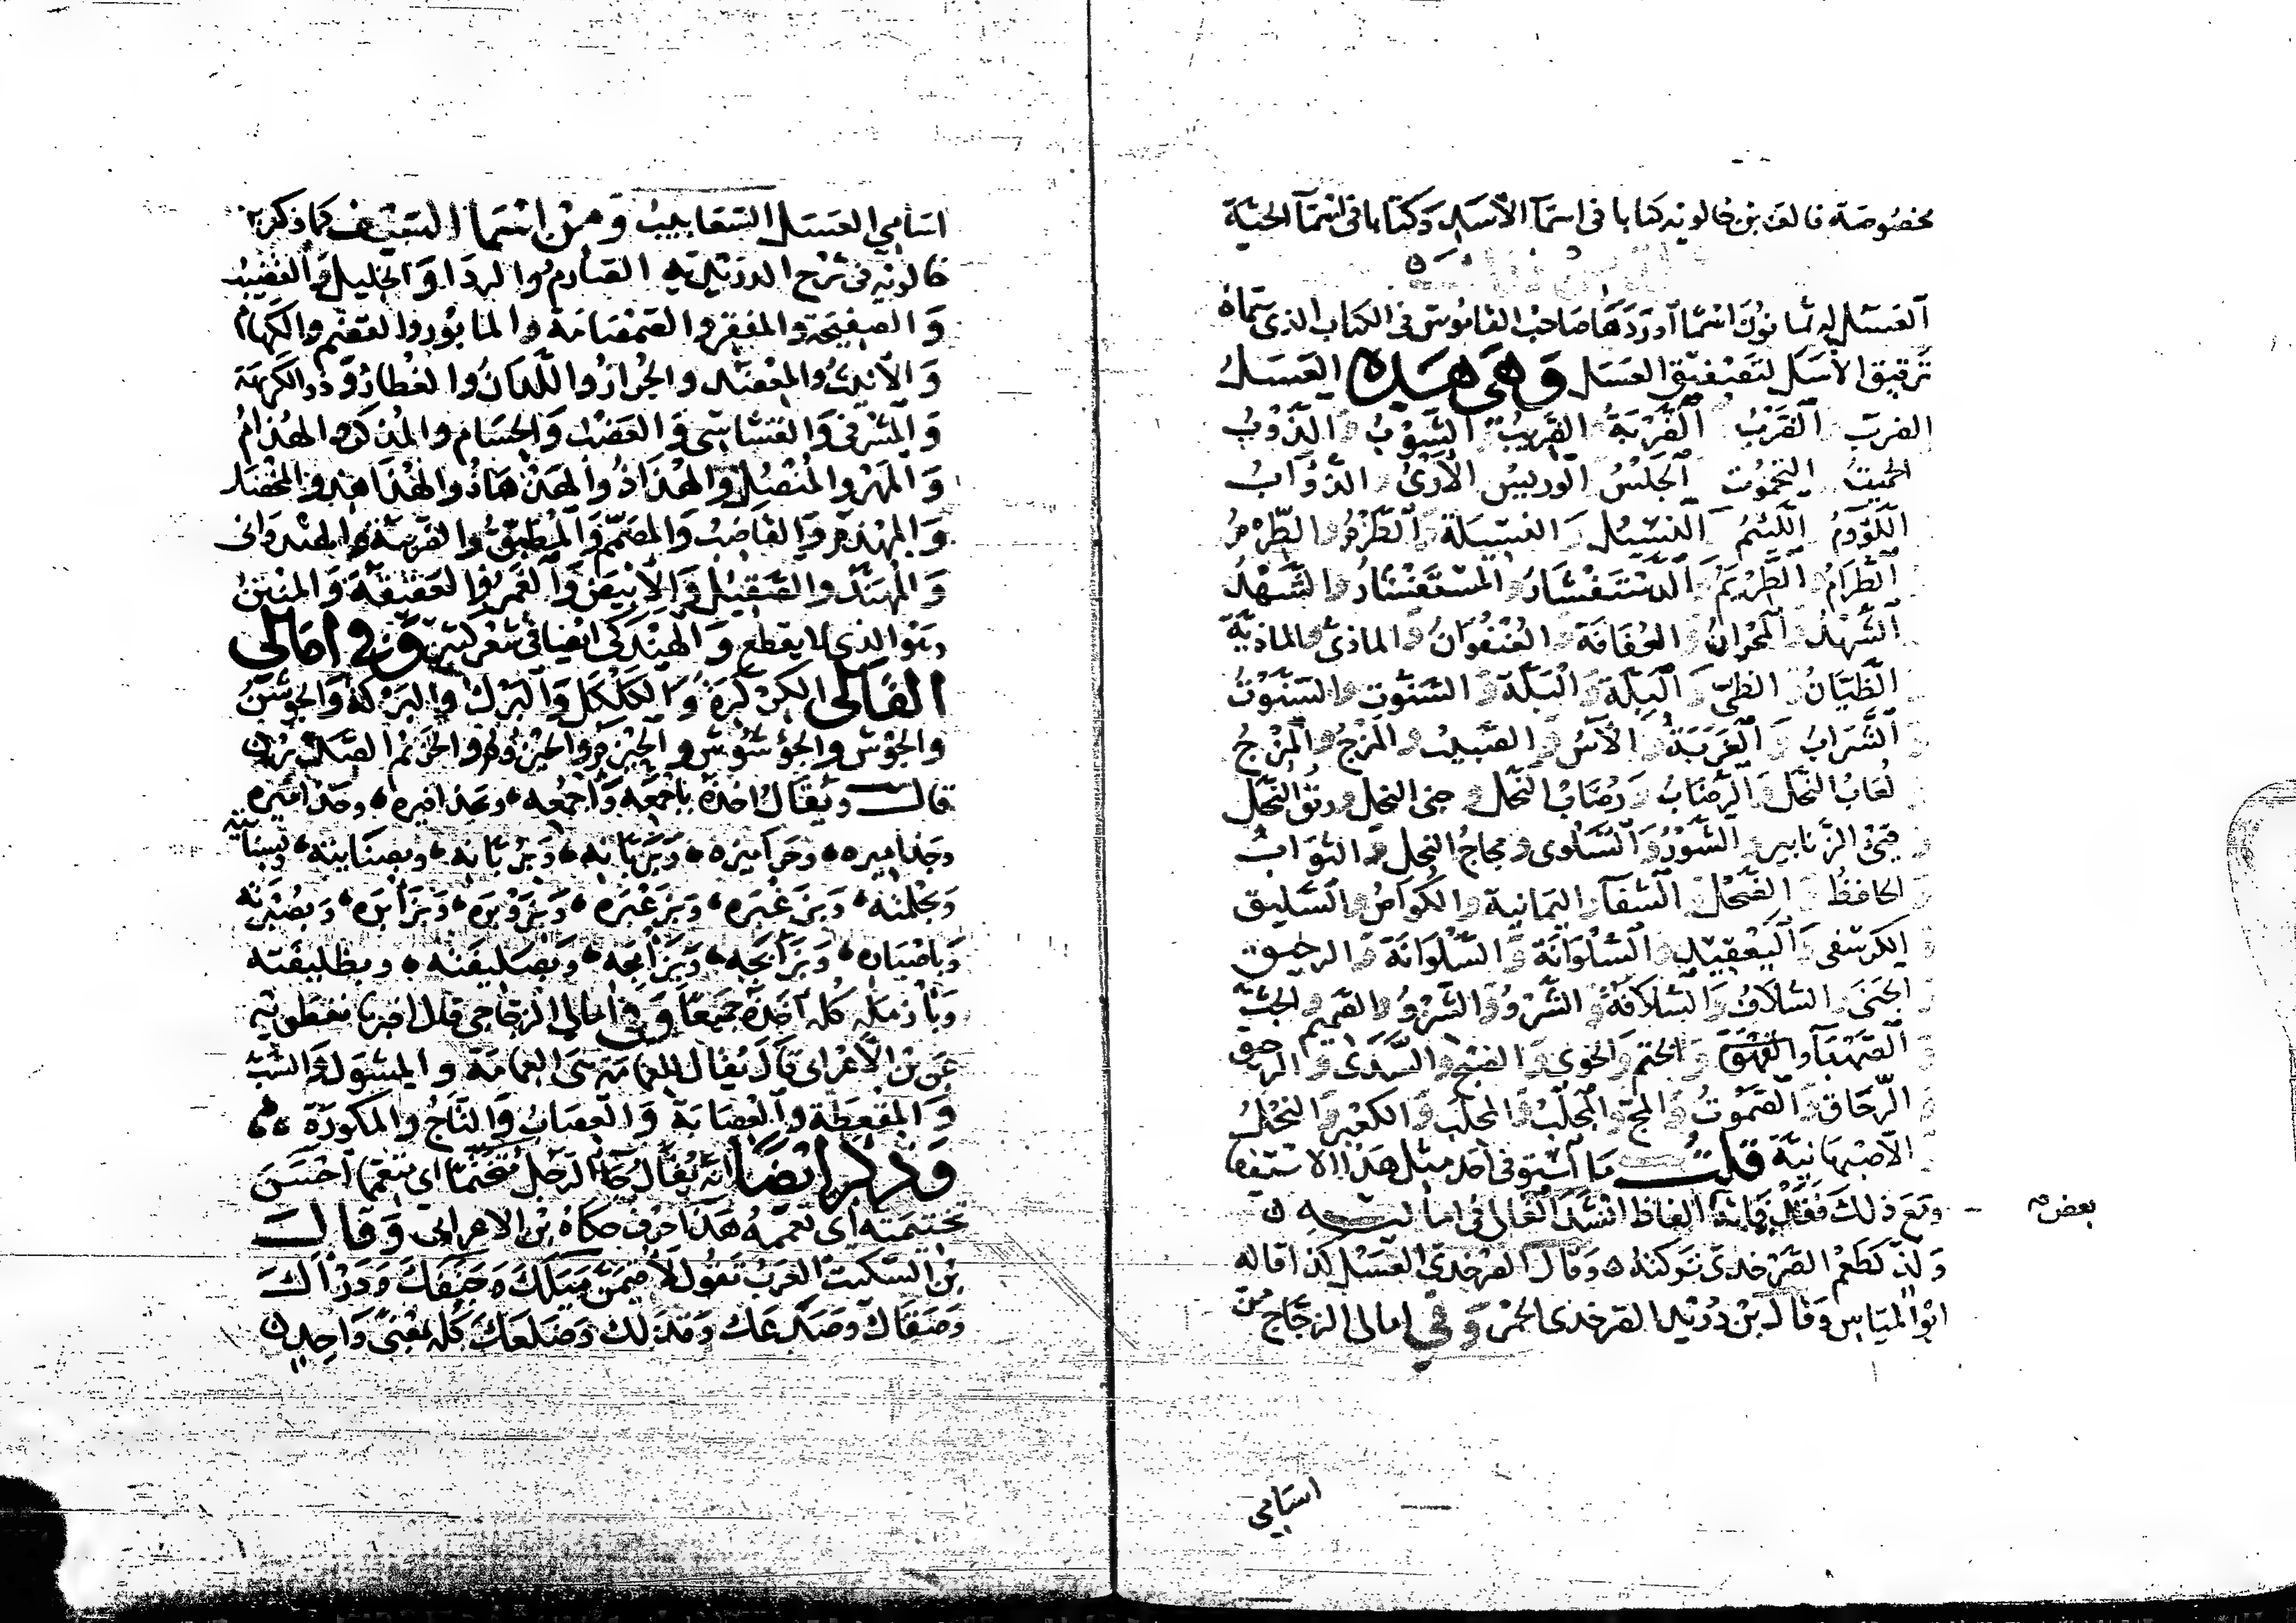 مخصوصة فالف بن خالويه كتابا في اسمآ الأسد وكتابا في اسمآ الحيّة
العسل له ثمانون اسما اوردها صاحب القاموس في الكتاب الذي سماه
ترقيق الأسل لتصفيق العسل وهي هذه العسل
الضرب الضَّرْب الضَّرَبَة الضَّريب الشَّوْبُ والذَّوْبُ
الحميت التحموت الجَلْسُ الوريس الأَرْىُ الذوابُ
اللَّوُّمُ اللِّئم النَّسيل والنسيلة والطَّرْم والطِّرْمُ
الطِّرَامُ الطِّرْيَمُ الدستفشار والمستفشار والشَّهْدُ
الشُّهْد المحران والعُفافة والعنفوانُ والماذي والماذيّة
الظَّيَّانُ والظي والبلّة والبلّة والسَّنّوت والسنَّوْتُ
الشراب والغَرَبَة والآسُ والصبيب والمزج والمِزْجُ
لُعابُ النَّحل والرُّضابُ ورُضابُ النَّحل وجنى النحل وريق النَّحل
قيء الزنابير والشَّوْرُ والسَّلوى ومجاج النحل والثوابُ
الحافظ والضحل الشفآ واليمانية والكُواص والسَّليق
الكرسفى واليعقيد والسَّلْوَانة والسُّلوانة والرحيق
الجَنَى والسُّلافُ والسُّلافة والسَّرْوُ والشَّرْوُ والصميم والجثّ
الصَّهْبآ والفهق والختم والخوى والضيح والسَّدَى والرحيق
الرُّحَاق والصَّمُوتُ والمجّ والمجلّب والمحلب والكعبر والنحل
الأصبهانية قلت ما آستوفى أحد مثل هذا الاستيفا
ومَعَ ذلك فقد فاته بعض الفاظ انشد القالى في اماليه
ولذّ كطعم الصَّرْخدى تركته وقال الصرخدى العسل كذا قاله
ابو المياس وقال بن دريد الصرخدى الخمر وفي امالى الزجاج من
اسامي
اسامي العسل السَّعابيب ومن اسما السيف كما ذكر بن
خالويه في شرح الدريدية الصارم والردا والخليل والقضيب
والصفيحة والمفقر والصمصامة والمأثور والقضم والكَهام
والأنيث والمعضد والجُراز واللدن والفُطار وذو الكريهة
والمَشرفي والقُساسى والعضب والحُسام والمذكر والهُذام
والمِهْر والمُنْصُل والهذاذ والهذهاذ والهذاهذ والمخصل
والمِهْذم والقاضب والمصمّم والمطبّق والضريبة والهندوانى
والمهنّد والصَّقيل والأبيض والغمر والعقيقة والمتين
وهو الذي لا يقطع والهندكى ايضا في شعر كثير وفي امالى
القالى الكركرة والكلكل والبَرْك والبِرْكة والجوشن
والجَوْش والجُؤْشُوش والحيزم والحيزوم والحزيم الصدر
قال ويقال اخذه باجمعه واجمُعه وبحذافيره وجذاميره
وجذاميره وحراميزه وبِرُبَّانه وبرُبَّانه وبصنايته وبسنايته
وبجُلمته وبزَغْبَره وبزَغْبَره وبزَوْبَره وبزأبره وبصُبْرته
وبأصباره وبزأبجه وبزأمجه وبصليفته وبظليفته
وبأزمله كله اخذه جميعا وفي امالي الزجاجي قال اخبرنا نفطويه
عن بن الأعرابى قال يقال للعمامة هى العمامة والمشوذ والسِّبّ
والمقعطة والعصابة والعصابُ والتاجُ والمكورة
وذكر ايضا انه يقال جآ الرجل متختما اى متعمما أحسن
تختيمته اى تعممه هذا حرف حكاه بن الاعرابى وقال
بن السّكيت العرب تقول لأقيمَنَّ ميلك وجنفك ودرأك
وصغاك وصدعك وقذلك وضلعك كله بمعنى واحد
بعض